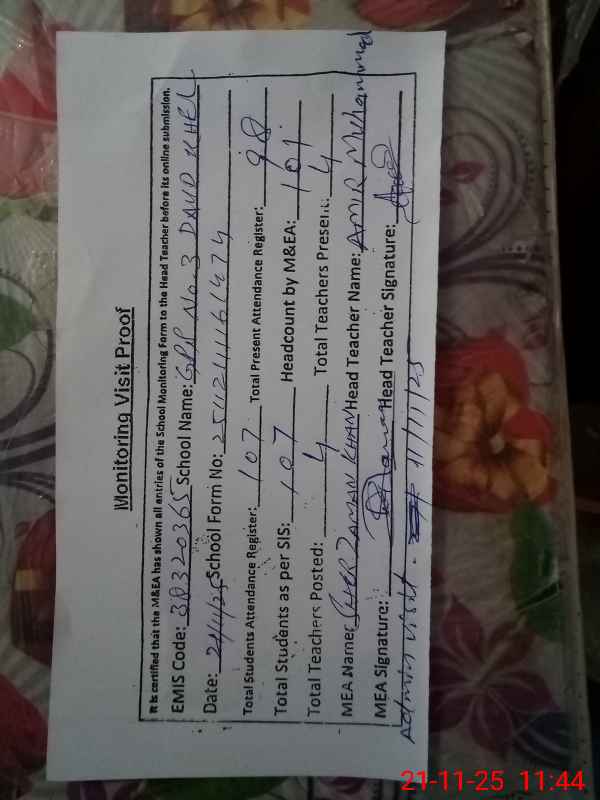 Monitoring Visit Proof
It is certified that the M&EA has shown all entries of the School Monitoring Form to the Head Teacher before its online submission.
EMIS Code: 38320365 School Name: GPS No 3 DAUD KHEL
Date: 21/11/25 School Form No: 251121111161474
Total Students Attendance Register: 107 Total Present Attendance Register: 98
Total Students as per SIS: 107 Headcount by M&EA: 101
Total Teachers Posted: 4 Total Teachers Present: 4
MEA Name: SHER ZAMAN KHAN Head Teacher Name: AMIR Muhammad
MEA Signature: Head Teacher Signature:
Admin visit. 11/11/25
21-11-25 11:44